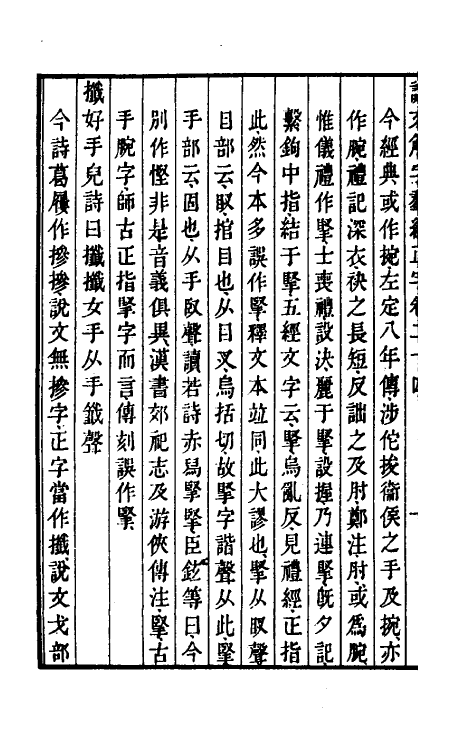 文解字羣經正字卷二十四
今經典或作捥左定八年傳涉佗捘衞侯之手及捥亦
作腕禮記深衣袂之長短反詘之及肘鄭注肘或爲腕
惟儀禮作𢯲士喪禮設決麗于𢯲設握乃連𢯲旣夕記
繫鉤中指結于𢯲五經文字云𢯲烏亂反見禮經正指
此然今本多誤作掔釋文本竝同此大謬也𢯲从𥄎聲
目部云𥄎捾目也从目叉烏括切故𢯲字諧聲从此掔
手部云固也从手臤聲讀若詩赤舄掔掔臣鉉等曰今
別作慳非是音義俱異漢書郊祀志及游俠傳注𢯲古
手腕字師古正指𢯲字而言傳刻誤作掔
攕好手皃詩曰攕攕女手从手韱聲
今詩葛屨作摻摻說文無摻字正字當作攕說文戈部